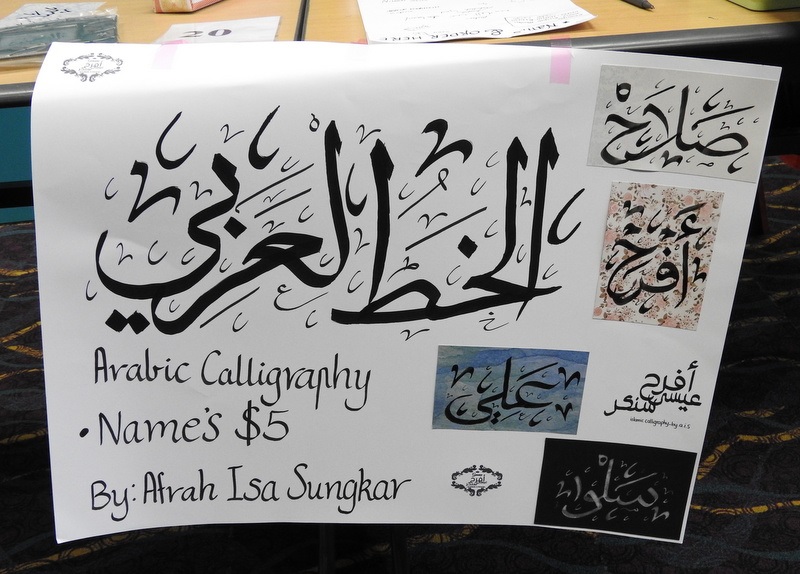 20
ORDER HERE
أفرح
الخط العربي
Arabic Calligraphy
• Name's $5
By: Afrah Isa Sungkar
صلاح
أفرح
علي
أفرح
عيسى
سنكر
islamic calligraphy by a.i.s
أفرح
سلوا